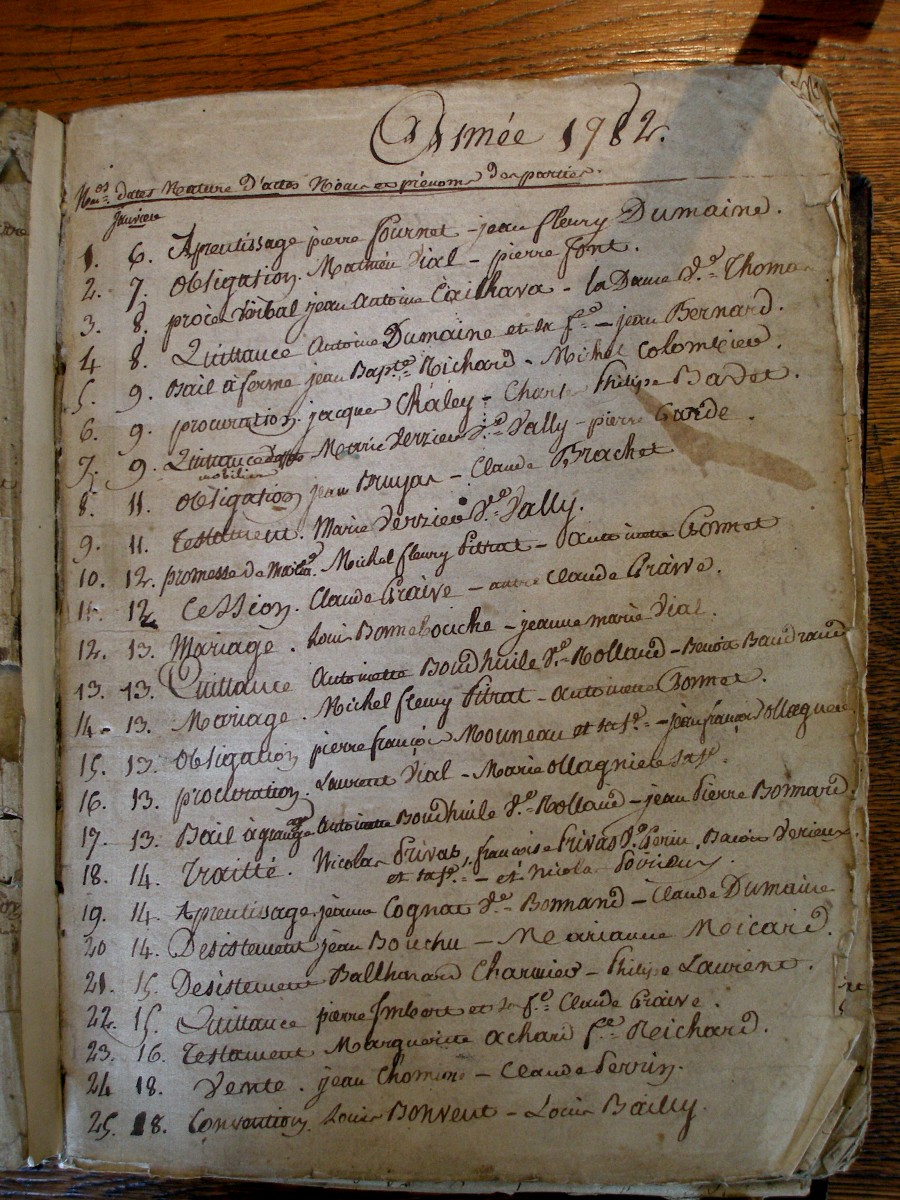 Année 1782.
Nos. dates Nature D'actes Noms et prénoms des parties.
Janvier
1. 6. Aprentissage pierre fournet - jean fleury Dumaine.
2. 7. Obligation. Mathieu Vial - pierre font.
3. 8. procès Verbal jean Antoine Cailhava - la Dame Ve. Thoma
4 8. Quittance Antoine Dumaine et sa fe. - jean Bernard.
5. 9. Bail à ferme jean Bapte. Richard - Michel Colombier.
6. 9. procuration. jacques Chaley - Charle Philipe Badet.
7. 9. Quittance Marie Verzieu Ve. Vally - pierre Garde.
mobilier
8. 11. Obligation jean Bruyas - Claude Brachet
9. 11. Testament. Marie Verzieu Ve. Vally.
10. 12. promesse de Michel fleury Pitrat - Antoinette Bonnet
11. 12. Cession. Claude Graive - autre Claude Graive.
12. 13. Mariage. Louis Bonnebouche - jeanne marie Vial.
13. 13. Quittance Antoinette Boudhuile Ve. Rolland - Benoit Baudrand
14. 13. Mariage. Michel fleury Pitrat - Antoinette Bonnet.
15. 13. Obligation pierre françois Mouneau et sa fe. - jean françois ollagnier
16. 13. procuration. Laurent Vial - Marie ollagniere sa fe.
17. 13. Bail à grange Antoinette Boudhuile Ve. Rolland - jean Pierre Bonnard.
18. 14. Traitté. Nicolas Privas, françoise Privas Ve.
et sa fe. - et Nicolas
19. 14. Aprentissage. jeanne Cognat Ve. Bonnand - Claude Dumaine
20 14. Desistement jean Bouchu - Marianne Micard.
21. 15. Desistement Balthazard Charmier - Philipe Laurent.
22. 15. Quittance pierre Imbert et sa fe. Claude Graive.
23. 16. Testament Marguerite achard fe. Reichard.
24 18. Vente. jean Chomin - Claude Perrin.
25. 18. Convention. Louis Bonvent - Louis Bailly.